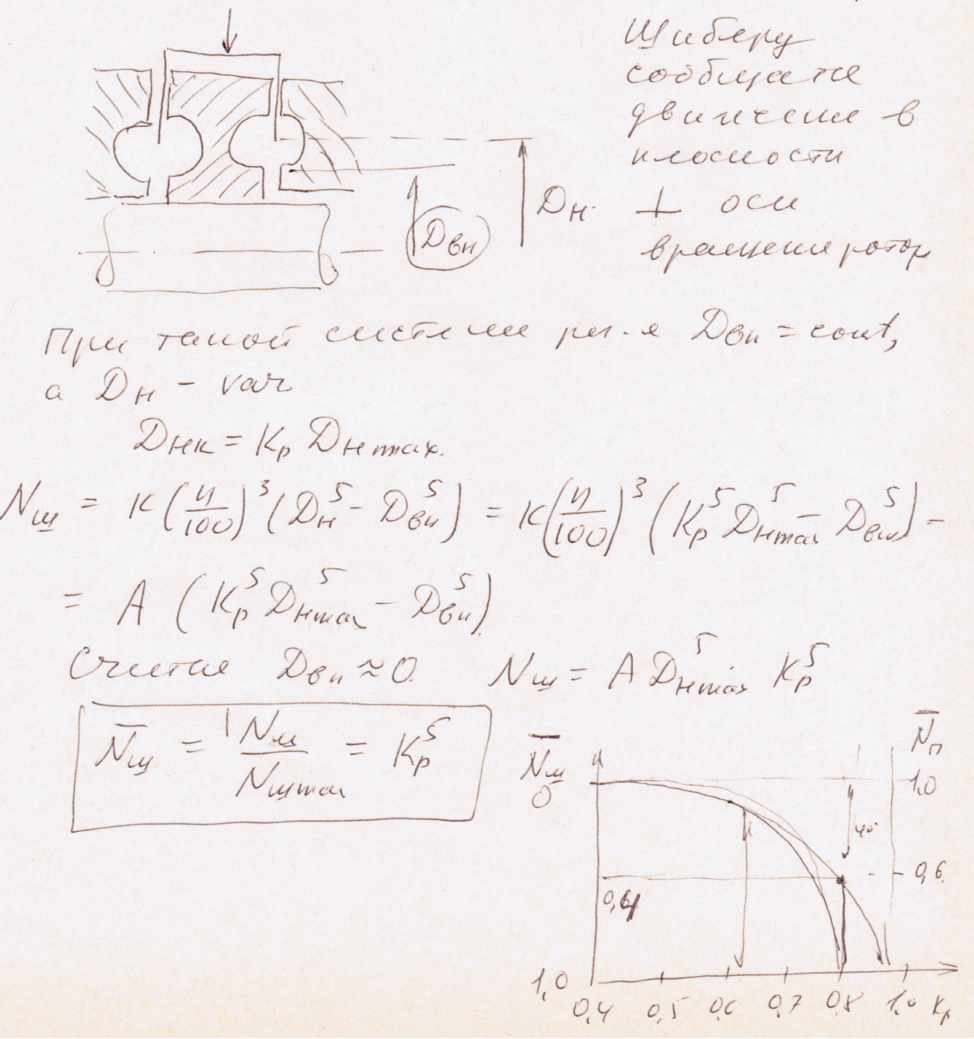 Шиберу
сообщатся
движение в
плоскости
⊥ оси
вращения ротор
Dн.
Dвн
При такой системе рег-я Dвн = const,
а Dн - var
Dнк = Kр Dн max.
Nщ = K(n/100)³ (Dн⁵ - Dвн⁵) = K(n/100)³ (Kр⁵ Dн max⁵ - Dвн⁵) -
= A (Kр⁵ Dн max⁵ - Dвн⁵)
Считая Dвн ≈ 0. Nщ = A Dн max⁵ Kр⁵
N̄щ = Nщ / Nщ max = Kр⁵
N̄щ
N̄п
0
1,0
40
0,6
0,4
1,0
0,4 0,5 0,6 0,7 0,8 1,0 Kр